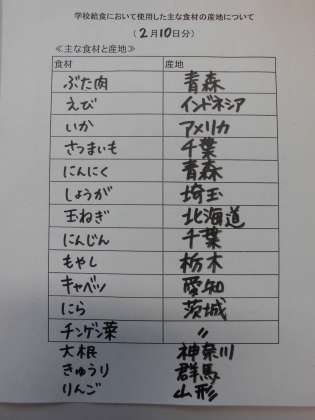 学校給食において使用した主な食材の産地について
(2月10日分)
≪主な食材と産地≫
食材 産地
ぶた肉 青森
えび インドネシア
いか アメリカ
さつまいも 千葉
にんにく 青森
しょうが 埼玉
玉ねぎ 北海道
にんじん 千葉
もやし 栃木
キャベツ 愛知
にら 茨城
チンゲン菜 〃
大根 神奈川
きゅうり 群馬
りんご 山形